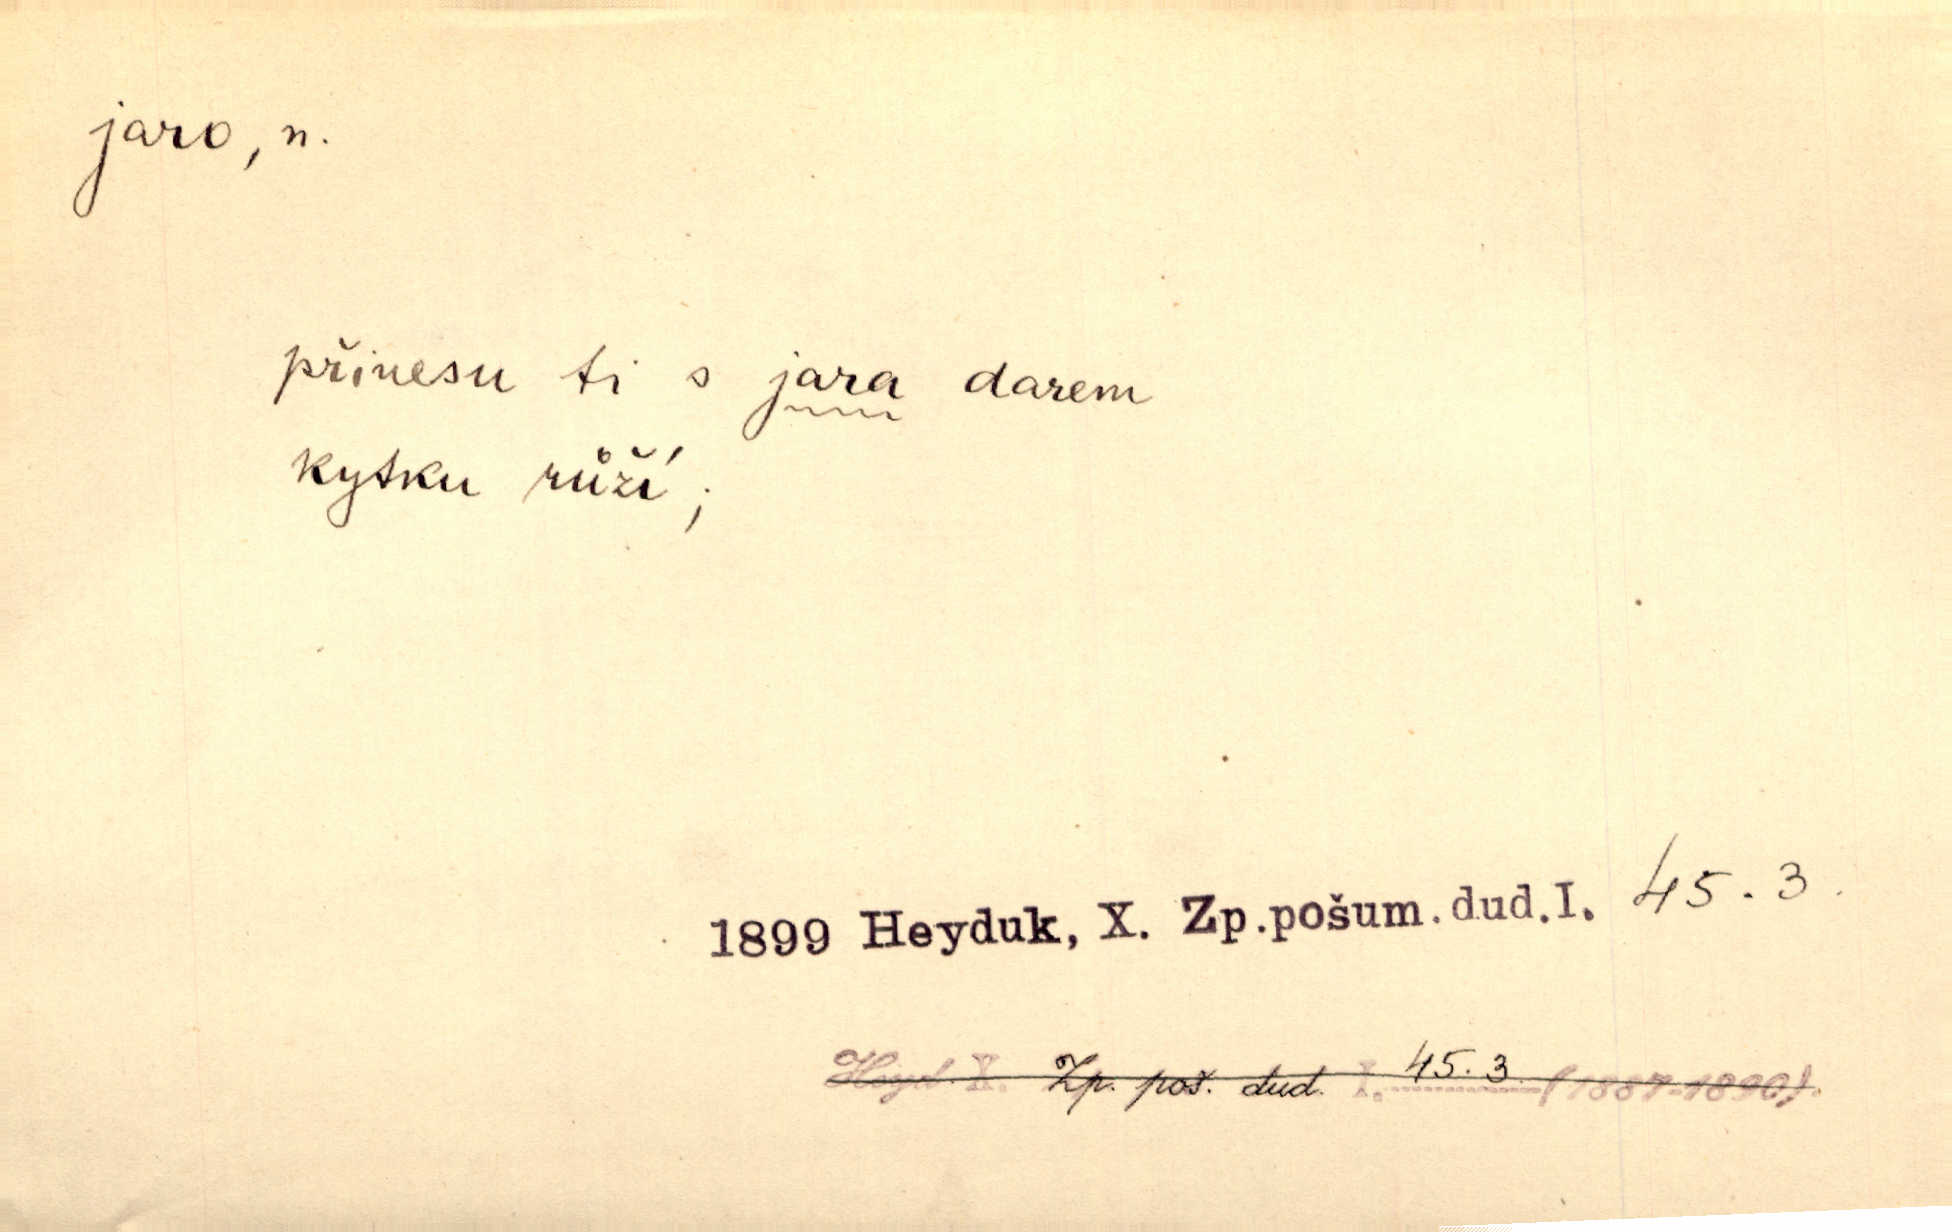 jaro, n.
přinesu ti s jara darem
kytku růží;
1899 Heyduk, X. Zp.pošum.dud.I. 45.3.
Heyd. X. Zp. poš. dud. I. 45.3 (1887-1890).